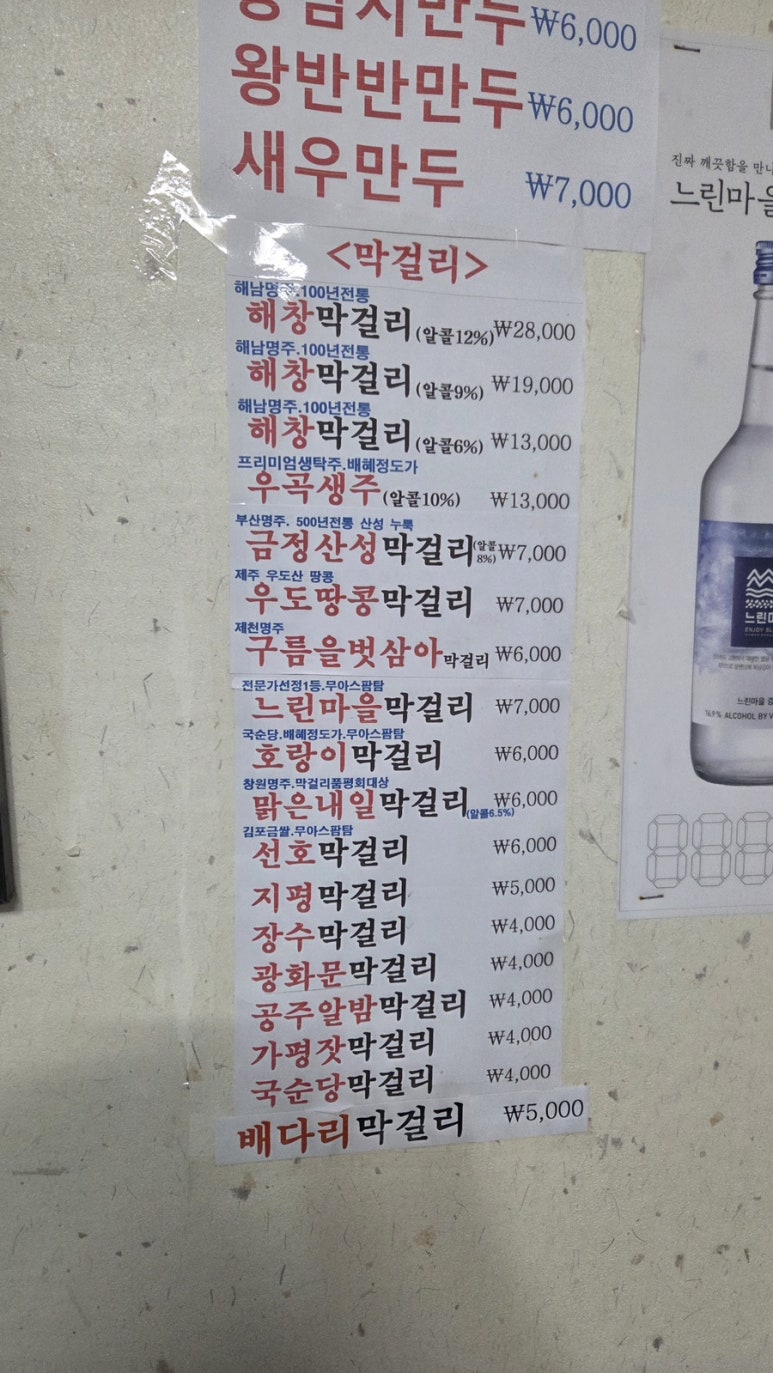 ₩6,000
왕반반만두 ₩6,000
새우만두 ₩7,000
<막걸리>
해남명주.100년전통
해창막걸리(알콜12%) ₩28,000
해남명주.100년전통
해창막걸리(알콜9%) ₩19,000
해남명주.100년전통
해창막걸리(알콜6%) ₩13,000
프리미엄생탁주.배혜정도가
우곡생주(알콜10%) ₩13,000
부산명주. 500년전통 산성 누룩
금정산성막걸리(알콜8%) ₩7,000
제주 우도산 땅콩
우도땅콩막걸리 ₩7,000
제천명주
구름을벗삼아막걸리 ₩6,000
전문가선정1등.무아스팜탐
느린마을막걸리 ₩7,000
국순당.배혜정도가.무아스팜탐
호랑이막걸리 ₩6,000
창원명주.막걸리품평회대상
맑은내일막걸리(알콜6.5%) ₩6,000
김포금쌀.무아스팜탐
선호막걸리 ₩6,000
지평막걸리 ₩5,000
장수막걸리 ₩4,000
광화문막걸리 ₩4,000
공주알밤막걸리 ₩4,000
가평잣막걸리 ₩4,000
국순당막걸리 ₩4,000
배다리막걸리 ₩5,000
진짜 깨끗함을
느린마을
느린
ENJOY
느린마을
16.9% ALCOHOL BY